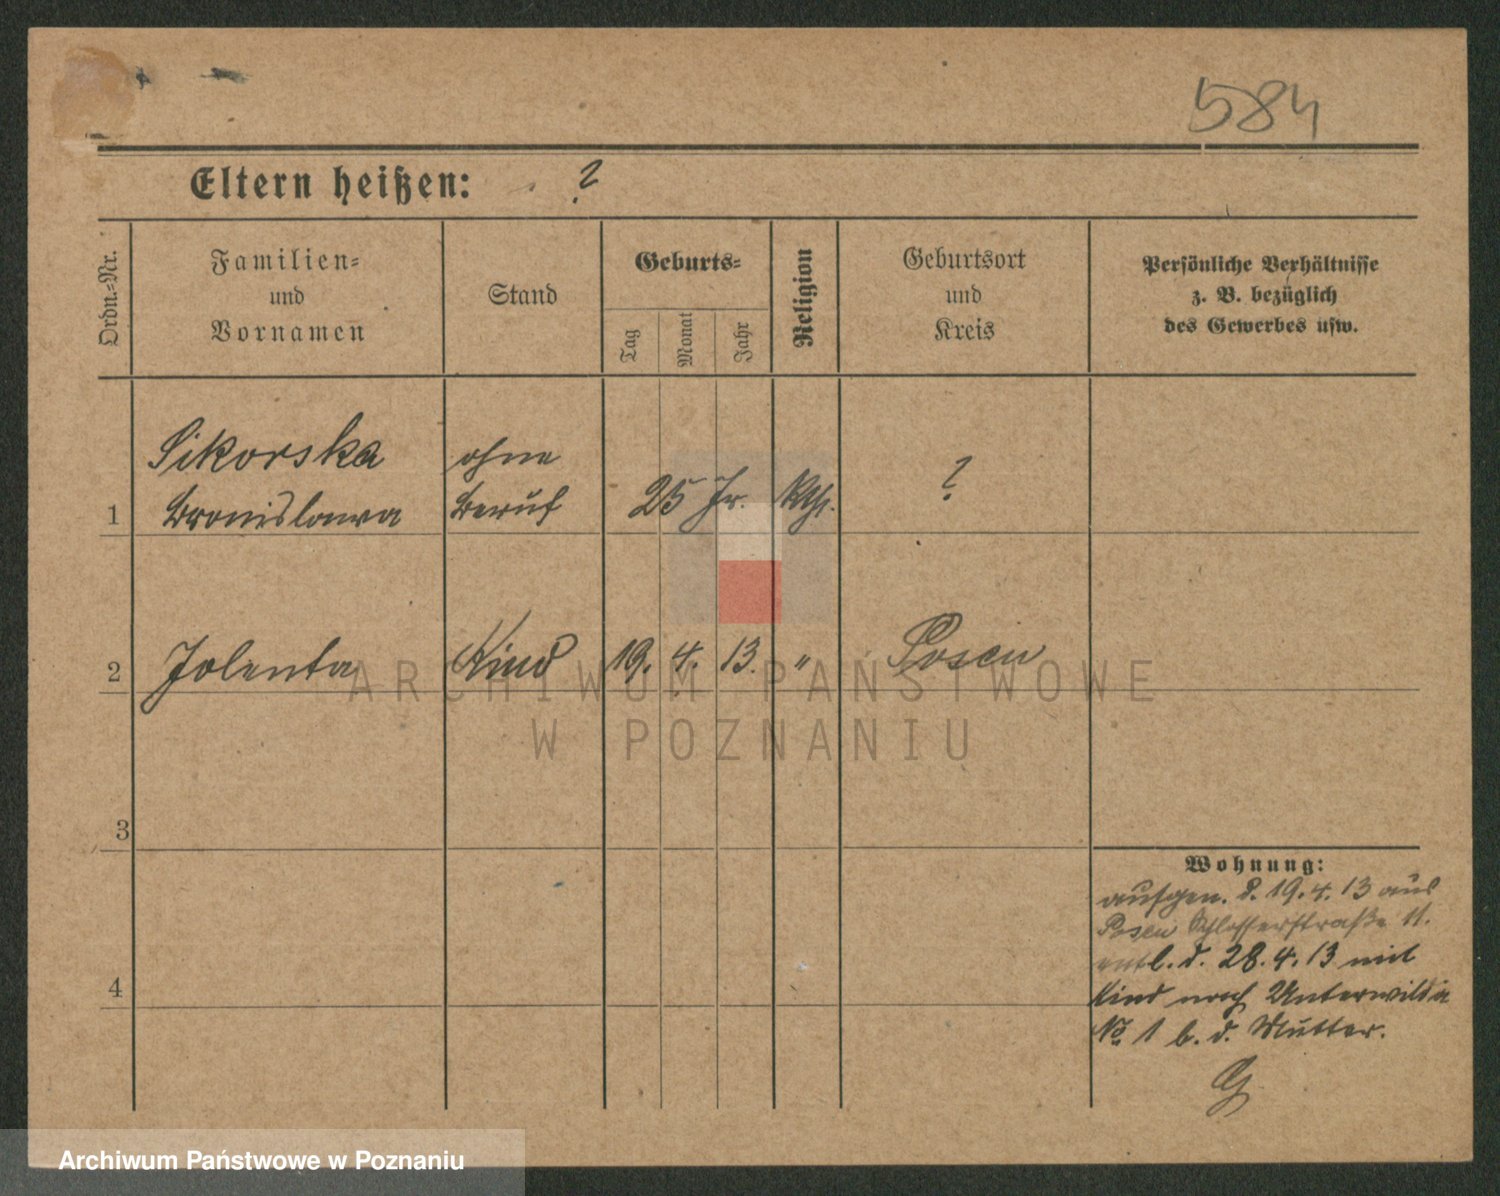 584
Eltern heißen: ?
Ordn.=Nr.
Familien=
und
Vornamen
Stand
Geburts=
Tag
Monat
Jahr
Religion
Geburtsort
und
Kreis
Persönliche Verhältnisse
z. B. bezüglich
des Gewerbes usw.
Sikorska ohne
1 Bronislawa Beruf 25 Jr. Kth. ?
2 Jolenta Kind 19. 4. 13. " Posen
ARCHIWUM PAŃSTWOWE
W POZNANIU
3
4
Wohnung:
aufgen. d. 19. 4. 13 aus
Posen Schlosserstraße 11.
entl. d. 28. 4. 13 mit
Kind nach Unterwilda
No 1 b. d. Mutter.
Archiwum Państwowe w Poznaniu